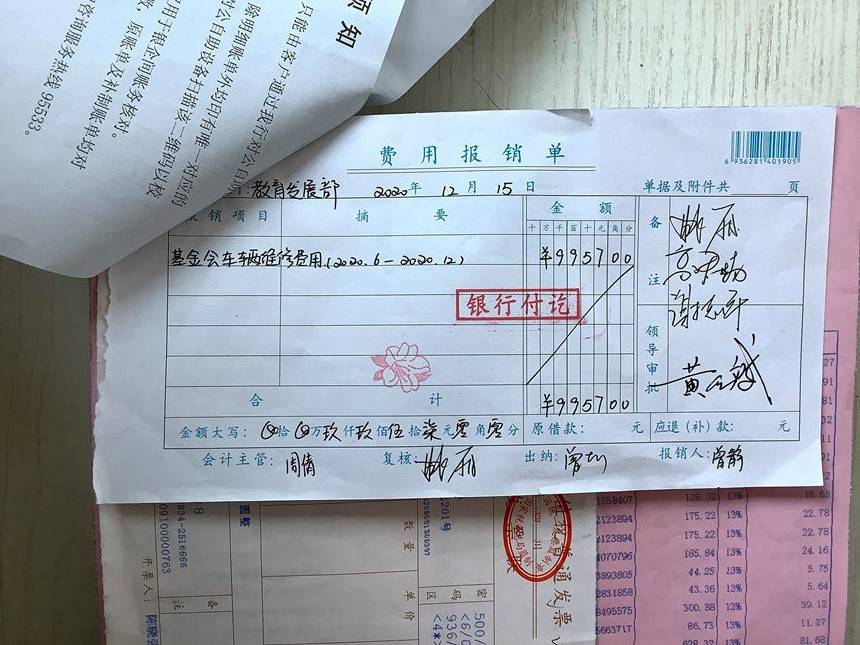 须知
只能由客户通过我行对公自助
除明细账单外均印有唯一对应的
对公自助设备扫描该二维码以校
用于银企间服务核对。
原账单及补制账单均对
咨询服务热线95533。
费用报销单
6 936281 401905
教育发展部 2020年 12月 15日 单据及附件共 页
报销项目 摘要 金额 备注
十万千百十元角分
基金会车辆维修费用(2020.6-2020.12) ¥995700
银行付讫
领导审批
合计 ¥995700
金额大写: 拾 万玖仟玖佰伍拾柒元零角零分 原借款: 元 应退(补)款: 元
会计主管:周倩 复核: 出纳: 报销人:曾静
834-2516666
09100000763
开票人:
备注
201号
数量
单价
密码区
500/
<6/0
936/
<4*>
四川
普通发票
27
91
81
32
11
1858407 128.32 13% 16.68
2123894 175.22 13% 22.78
2123894 175.22 13% 22.78
4070796 185.84 13% 24.16
3893805 44.25 13% 5.75
2831858 43.36 13% 5.64
8495575 300.88 13% 39.12
5663717 86.73 13% 11.27
628.32 13% 81.68